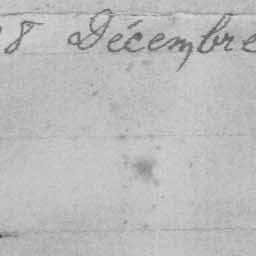 8 Décembre